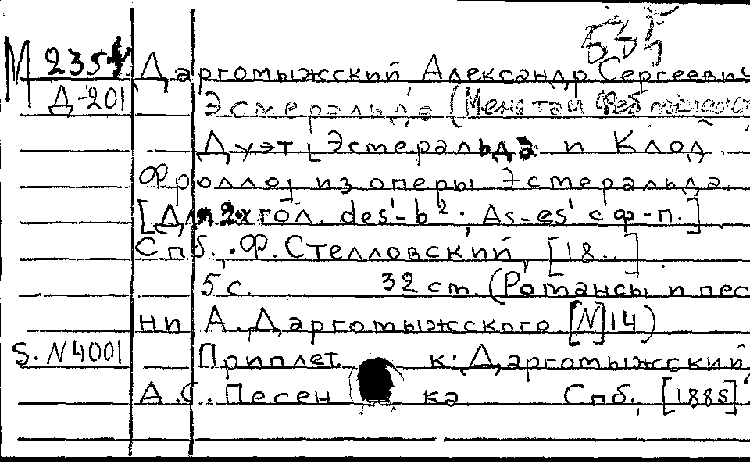 535
М 235 Даргомыжский, Александр Сергеевич
Д-201 Эсмеральда (Мечтай
Дуэт [Эсмеральда и Клод
Фролло] из оперы Эсмеральда.
[Для 2х гол. des'-b²; As-es' с ф-п.]
Спб., Ф. Стелловский, [18..]
5 с. 32 см. (Романсы и пес
ни А. Даргомыжского [N]14)
S. N4001 Приплет. к: Даргомыжский,
А.С. Песен ка Спб., [1885]